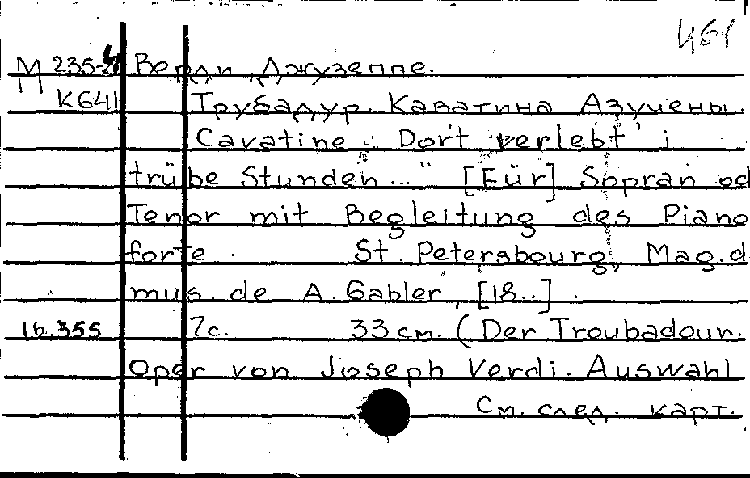 461
М 235-4 Верди, Джузеппе.
К641 Трубадур. Каватина Азучены.
Cavatine: "Dort verlebt' i
trübe Stunden..." [Für] Sopran od
Tenor mit Begleitung des Piano
forte. St. Petersbourg, Mag. d
mus. de A. Gabler, [18..].
7c. 33 см. (Der Troubadour.
Oper von Joseph Verdi. Auswahl
См. след. карт.